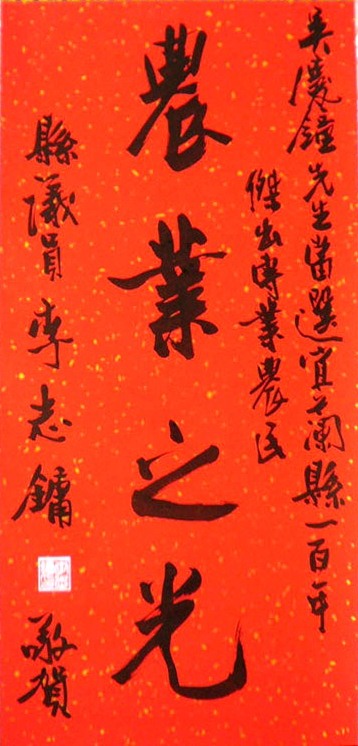 吳慶鐘先生當選宜蘭縣一百年
傑出專業農民
農業之光
縣議員李志鏞
敬賀